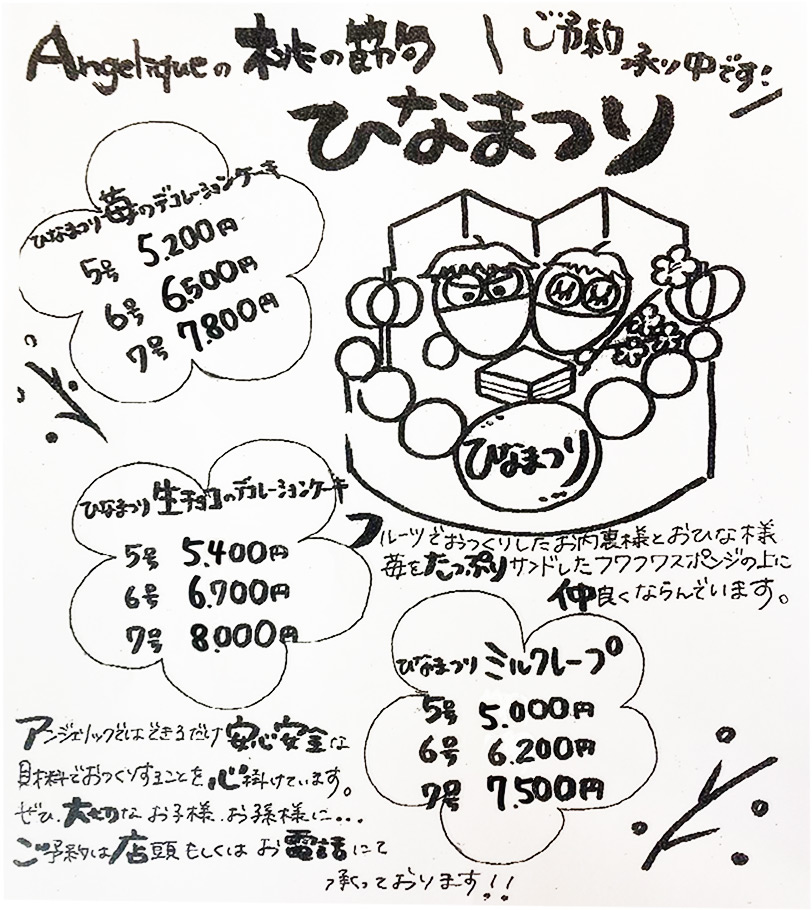 Angeliqueの 桃の節句
ご予約
承り中です!
ひなまつり
ひなまつり苺のデコレーションケーキ
5号 5.200円
6号 6.500円
7号 7.800円
ひなまつり
ひなまつり生チョコのデコレーションケーキ
5号 5.400円
6号 6.700円
7号 8.000円
フルーツでおつくりしたお内裏様とおひな様
苺をたっぷりサンドしたフワフワスポンジの上に
仲良くならんでいます。
ひなまつり ミルクレープ
5号 5.000円
6号 6.200円
7号 7.500円
アンジェリックではできるだけ安心安全な
材料でおつくりすることを心掛けています。
ぜひ、大切なお子様、お孫様に...
ご予約は店頭もしくはお電話にて
承っております!!